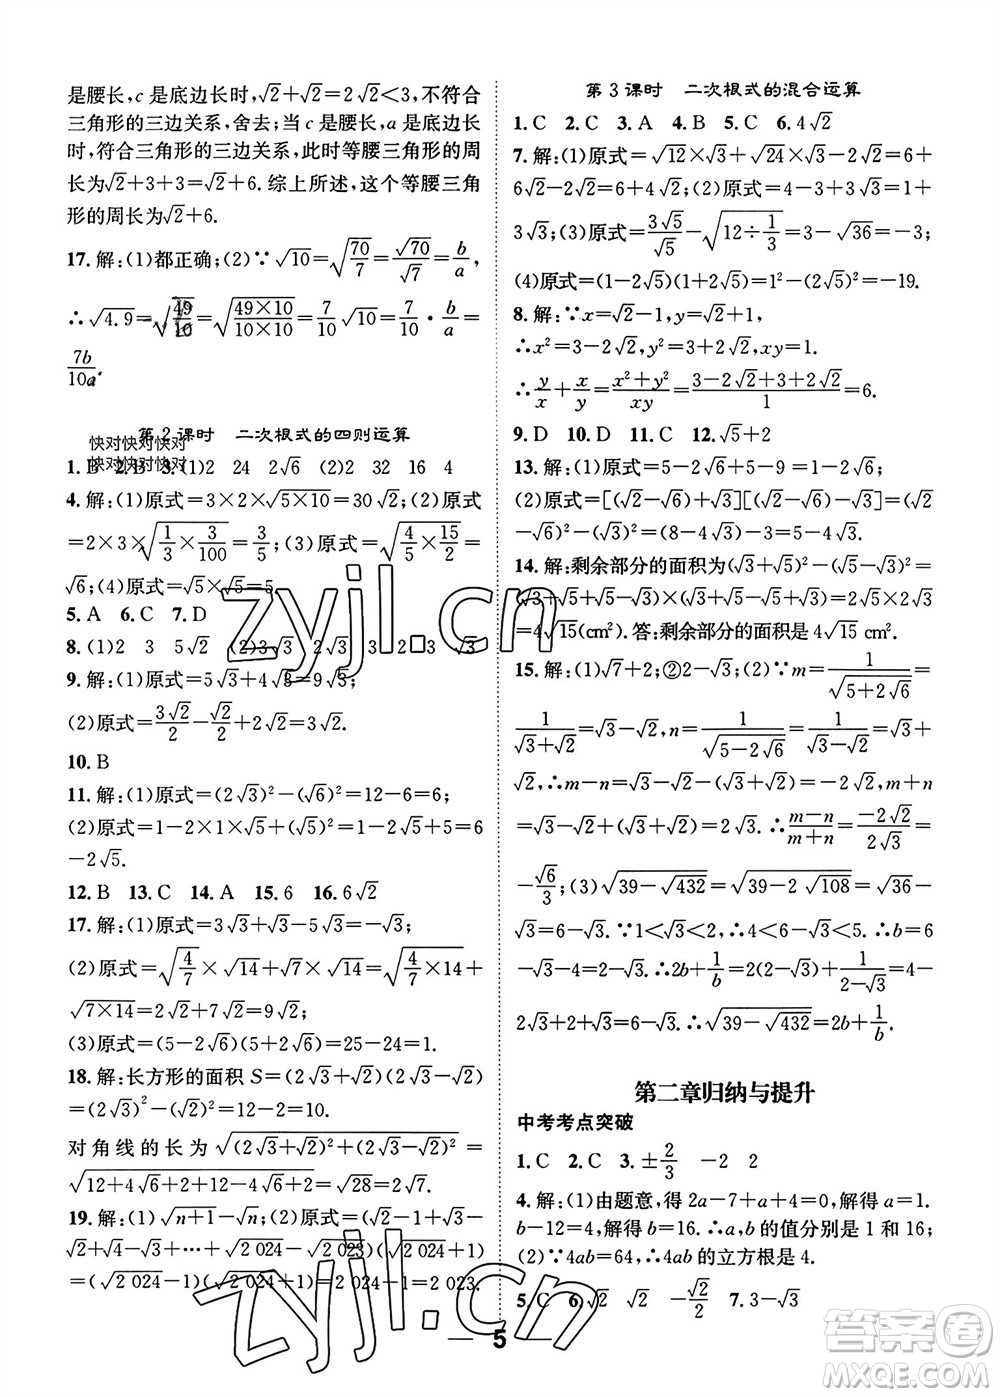 是腰长,c是底边长时,√2+√2=2√2<3,不符合
三角形的三边关系,舍去;当c是腰长,a是底边长时,
符合三角形的三边关系,此时等腰三角形的周
长为√2+3+3=√2+6.综上所述,这个等腰三角
形的周长为√2+6.
17.解:(1)都正确;(2)∵√10=√(70/7)=√70/√7=b/a,
∴√4.9=√(49/10)=√((49×10)/(10×10))=7/10 √10=7/10·b/a=
7b/10a.
第2课时 二次根式的四则运算
快对快对快对
快对快对快对
1.B 2.B 3.(1)2 24 2√6 (2)2 32 16 4
4.解:(1)原式=3×2×√(5×10)=30√2;(2)原式
=2×3×√(1/3×3/100)=3/5;(3)原式=√(4/5×15/2)=
√6;(4)原式=√5×√5=5.
5.A 6.C 7.D
8.(1)2 3 5√2 (2)3√3 2√3 2 3 √3
9.解:(1)原式=5√3+4√3=9√3;
(2)原式=3√2/2-√2/2+2√2=3√2.
10.B
11.解:(1)原式=(2√3)²-(√6)²=12-6=6;
(2)原式=1-2×1×√5+(√5)²=1-2√5+5=6
-2√5.
12.B 13.C 14.A 15.6 16.6√2
17.解:(1)原式=3√3+√3-5√3=-√3;
(2)原式=√(4/7)×√14+√7×√14=√(4/7×14)+
√(7×14)=2√2+7√2=9√2;
(3)原式=(5-2√6)(5+2√6)=25-24=1.
18.解:长方形的面积S=(2√3+√2)(2√3-√2)=
(2√3)²-(√2)²=12-2=10;
对角线的长为√((2√3+√2)²+(2√3-√2)²)=
√(12+4√6+2+12-4√6+2)=√28=2√7.
19.解:(1)√(n+1)-√n;(2)原式=(√2-1+√3-
√2+…+√2 024-√2 023)(√2 024+1)
=(√2 024-1)(√2 024+1)=2 024-1=2 023.
第3课时 二次根式的混合运算
1.C 2.C 3.A 4.B 5.C 6.4√2
7.解:(1)原式=√12×√3+√24×√3-2√6=6+
6√2-2√6;(2)原式=1-2√3+3+5√3=4+
3√3;(3)原式=3√5/√5-√(12÷1/3)=3-√36=3-6=-3;
(4)原式=(1-2√5)(1+2√5)=1²-(2√5)²=-19.
8.解:∵x=√2-1,y=√2+1,
∴x²=3-2√2,y²=3+2√2,xy=1.
∴y/x+x/y=(x²+y²)/xy=(3-2√2+3+2√2)/1=6.
9.D 10.D 11.C 12.√5+2
13.解:(1)原式=5-4√5+4+5-9=5-4√5;
(2)原式=[(√2-√6)+√3][(√2-√6)-√3]=(√2
-√6)²-(√3)²=(8-4√3)-3=5-4√3.
14.解:剩余部分的面积为(√3+√5)²-(√3)²-(√5)²=
√15+√15+√15+√15
=4√15(cm²).答:剩余部分的面积是4√15 cm².
15.解:(1)①√7+2;②2-√3;(2)∵m=1/√(5+2√6)=
1/(√3+√2)=√3-√2,n=1/√(5-2√6)=1/(√3-√2)=√3+
√2,∴m-n=√3-√2-√3-√2=-2√2,m+n
=√3-√2+√3+√2=2√3.∴(m-n)/(m+n)=-2√2/2√3=
-√6/3;(3)√(39-√432)=√(39-2√108)=√36-
√3=6-√3.∵1<√3<2,∴4<6-√3<5.∴b=6
-√3-4=2-√3.∴2b+1/b=2(2-√3)+1/(2-√3)=4-
2√3+2+√3=6-√3.∴√(39-√432)=2b+1/b.
第二章归纳与提升
中考考点突破
1.C 2.C 3.±2/3 -2 2
4.解:(1)由题意,得2a-7+a+4=0,解得a=1.
b-12=4,解得b=16.∴a,b的值分别是1和16;
(2)∵4ab=64,∴4ab的立方根是4.
5.C 6.√2 √2 -√2/2 7.3-√3
5
zyjl.cn
zyjl.cn
答案卷
MXQE.COM